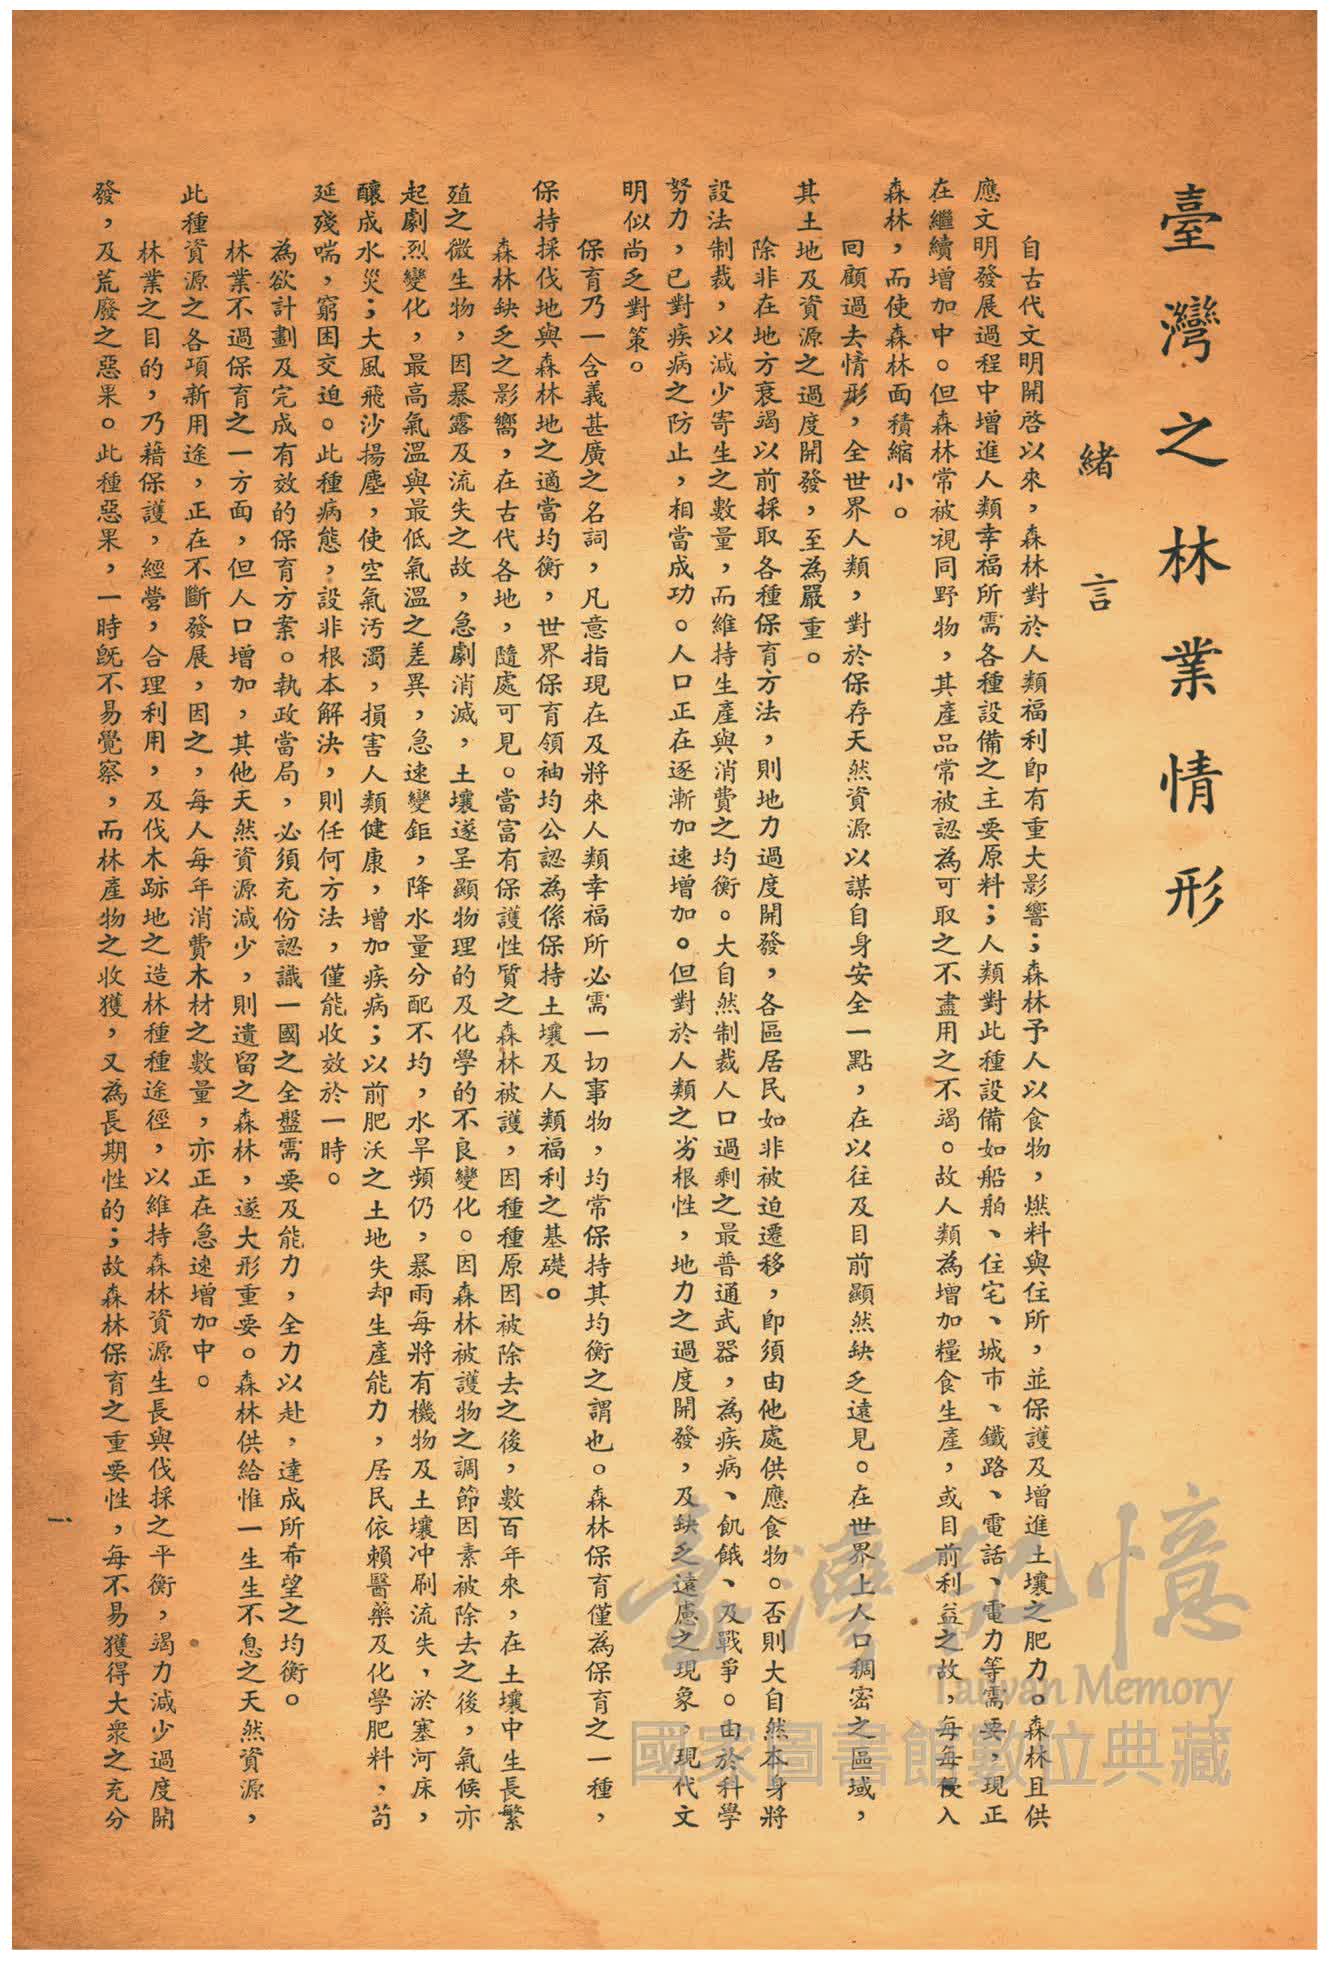 臺灣之林業情形
緒言
自古代文明開啓以來，森林對於人類福利卽有重大影響；森林予人以食物，燃料與住所，並保護及增進土壤之肥力。森林且供
應文明發展過程中增進人類幸福所需各種設備之主要原料；人類對此種設備如船舶、住宅、城市、鐵路、電話、電力等需要，現正
在繼續增加中。但森林常被視同野物，其產品常被認為可取之不盡用之不竭。故人類為增加糧食生產，或目前利益之故，每每侵入
森林，而使森林面積縮小。
回顧過去情形，全世界人類，對於保存天然資源以謀自身安全一點，在以往及目前顯然缺乏遠見。在世界上人口稠密之區域，
其土地及資源之過度開發，至為嚴重。
除非在地方衰竭以前採取各種保育方法，則地力過度開發，各區居民如非被迫遷移，卽須由他處供應食物。否則大自然本身將
設法制裁，以減少寄生之數量，而維持生產與消費之均衡。大自然制裁人口過剩之最普通武器，為疾病、飢餓、及戰爭。由於科學
努力，已對疾病之防止，相當成功。人口正在逐漸加速增加。但對於人類之劣根性，地力之過度開發，及缺乏遠慮之現象，現代文
明似尚乏對策。
保育乃一含義甚廣之名詞，凡意指現在及將來人類幸福所必需一切事物，均常保持其均衡之謂也。森林保育僅為保育之一種，
保持採伐地與森林地之適當均衡，世界保育領袖均公認為係保持土壤及人類福利之基礎。
森林缺乏之影嚮，在古代各地，隨處可見。當富有保護性質之森林被護，因種種原因被除去之後，數百年來，在土壤中生長繁
殖之微生物，因暴露及流失之故，急劇消滅，土壤遂呈顯物理的及化學的不良變化。因森林被護物之調節因素被除去之後，氣候亦
起劇烈變化，最高氣溫與最低氣溫之差異，急速變鉅，降水量分配不均，水旱頻仍，暴雨每將有機物及土壤冲刷流失，淤塞河床，
釀成水災；大風飛沙揚塵，使空氣汚濁，損害人類健康，增加疾病；以前肥沃之土地失却生產能力，居民依賴醫藥及化學肥料，苟
延殘喘，窮困交迫。此種病態，設非根本解決，則任何方法，僅能收效於一時。
為欲計劃及完成有效的保育方案。執政當局，必須充份認識一國之全盤需要及能力，全力以赴，達成所希望之均衡。
林業不過保育之一方面，但人口增加，其他天然資源減少，則遺留之森林，遂大形重要。森林供給惟一生生不息之天然資源，
此種資源之各項新用途，正在不斷發展，因之，每人每年消費木材之數量，亦正在急速增加中。
林業之目的，乃藉保護，經營，合理利用，及伐木跡地之造林種種途徑，以維持森林資源生長與伐採之平衡，竭力減少過度開
發，及荒廢之惡果。此種惡果，一時旣不易覺察，而林產物之收獲，又為長期性的；故森林保育之重要性，每不易獲得大衆之充分
一
臺灣記憶
Taiwan Memory
國家圖書館數位典藏